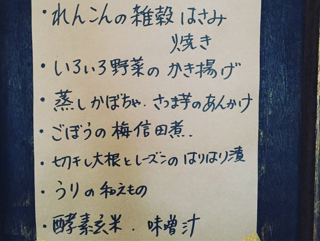 ・れんこんの雑穀はさみ
焼き
・いろいろ野菜のかき揚げ
・蒸しかぼちゃ.さつま芋のあんかけ
・ごぼうの梅信田煮.
・切干し大根とレーズンのはりはり漬
・うりの和えもの
・酵素玄米.味噌汁